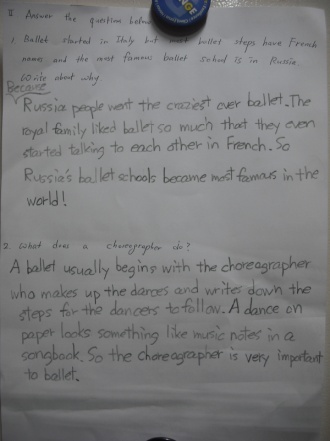 II Answer the question below
1. Ballet started in Italy but most ballet steps have French
names and the most famous ballet school is in Russia.
Write about why.
Because
Russia people went the craziest over ballet. The
royal family liked ballet so much that they even
started talking to each other in French. So
Russia's ballet schools became most famous in the
world!
2. What does a choreographer do?
A ballet usually begins with the choreographer
who makes up the dances and writes down the
steps for the dancers to follow. A dance on
paper looks something like music notes in a
songbook. So the choreographer is very important
to ballet.